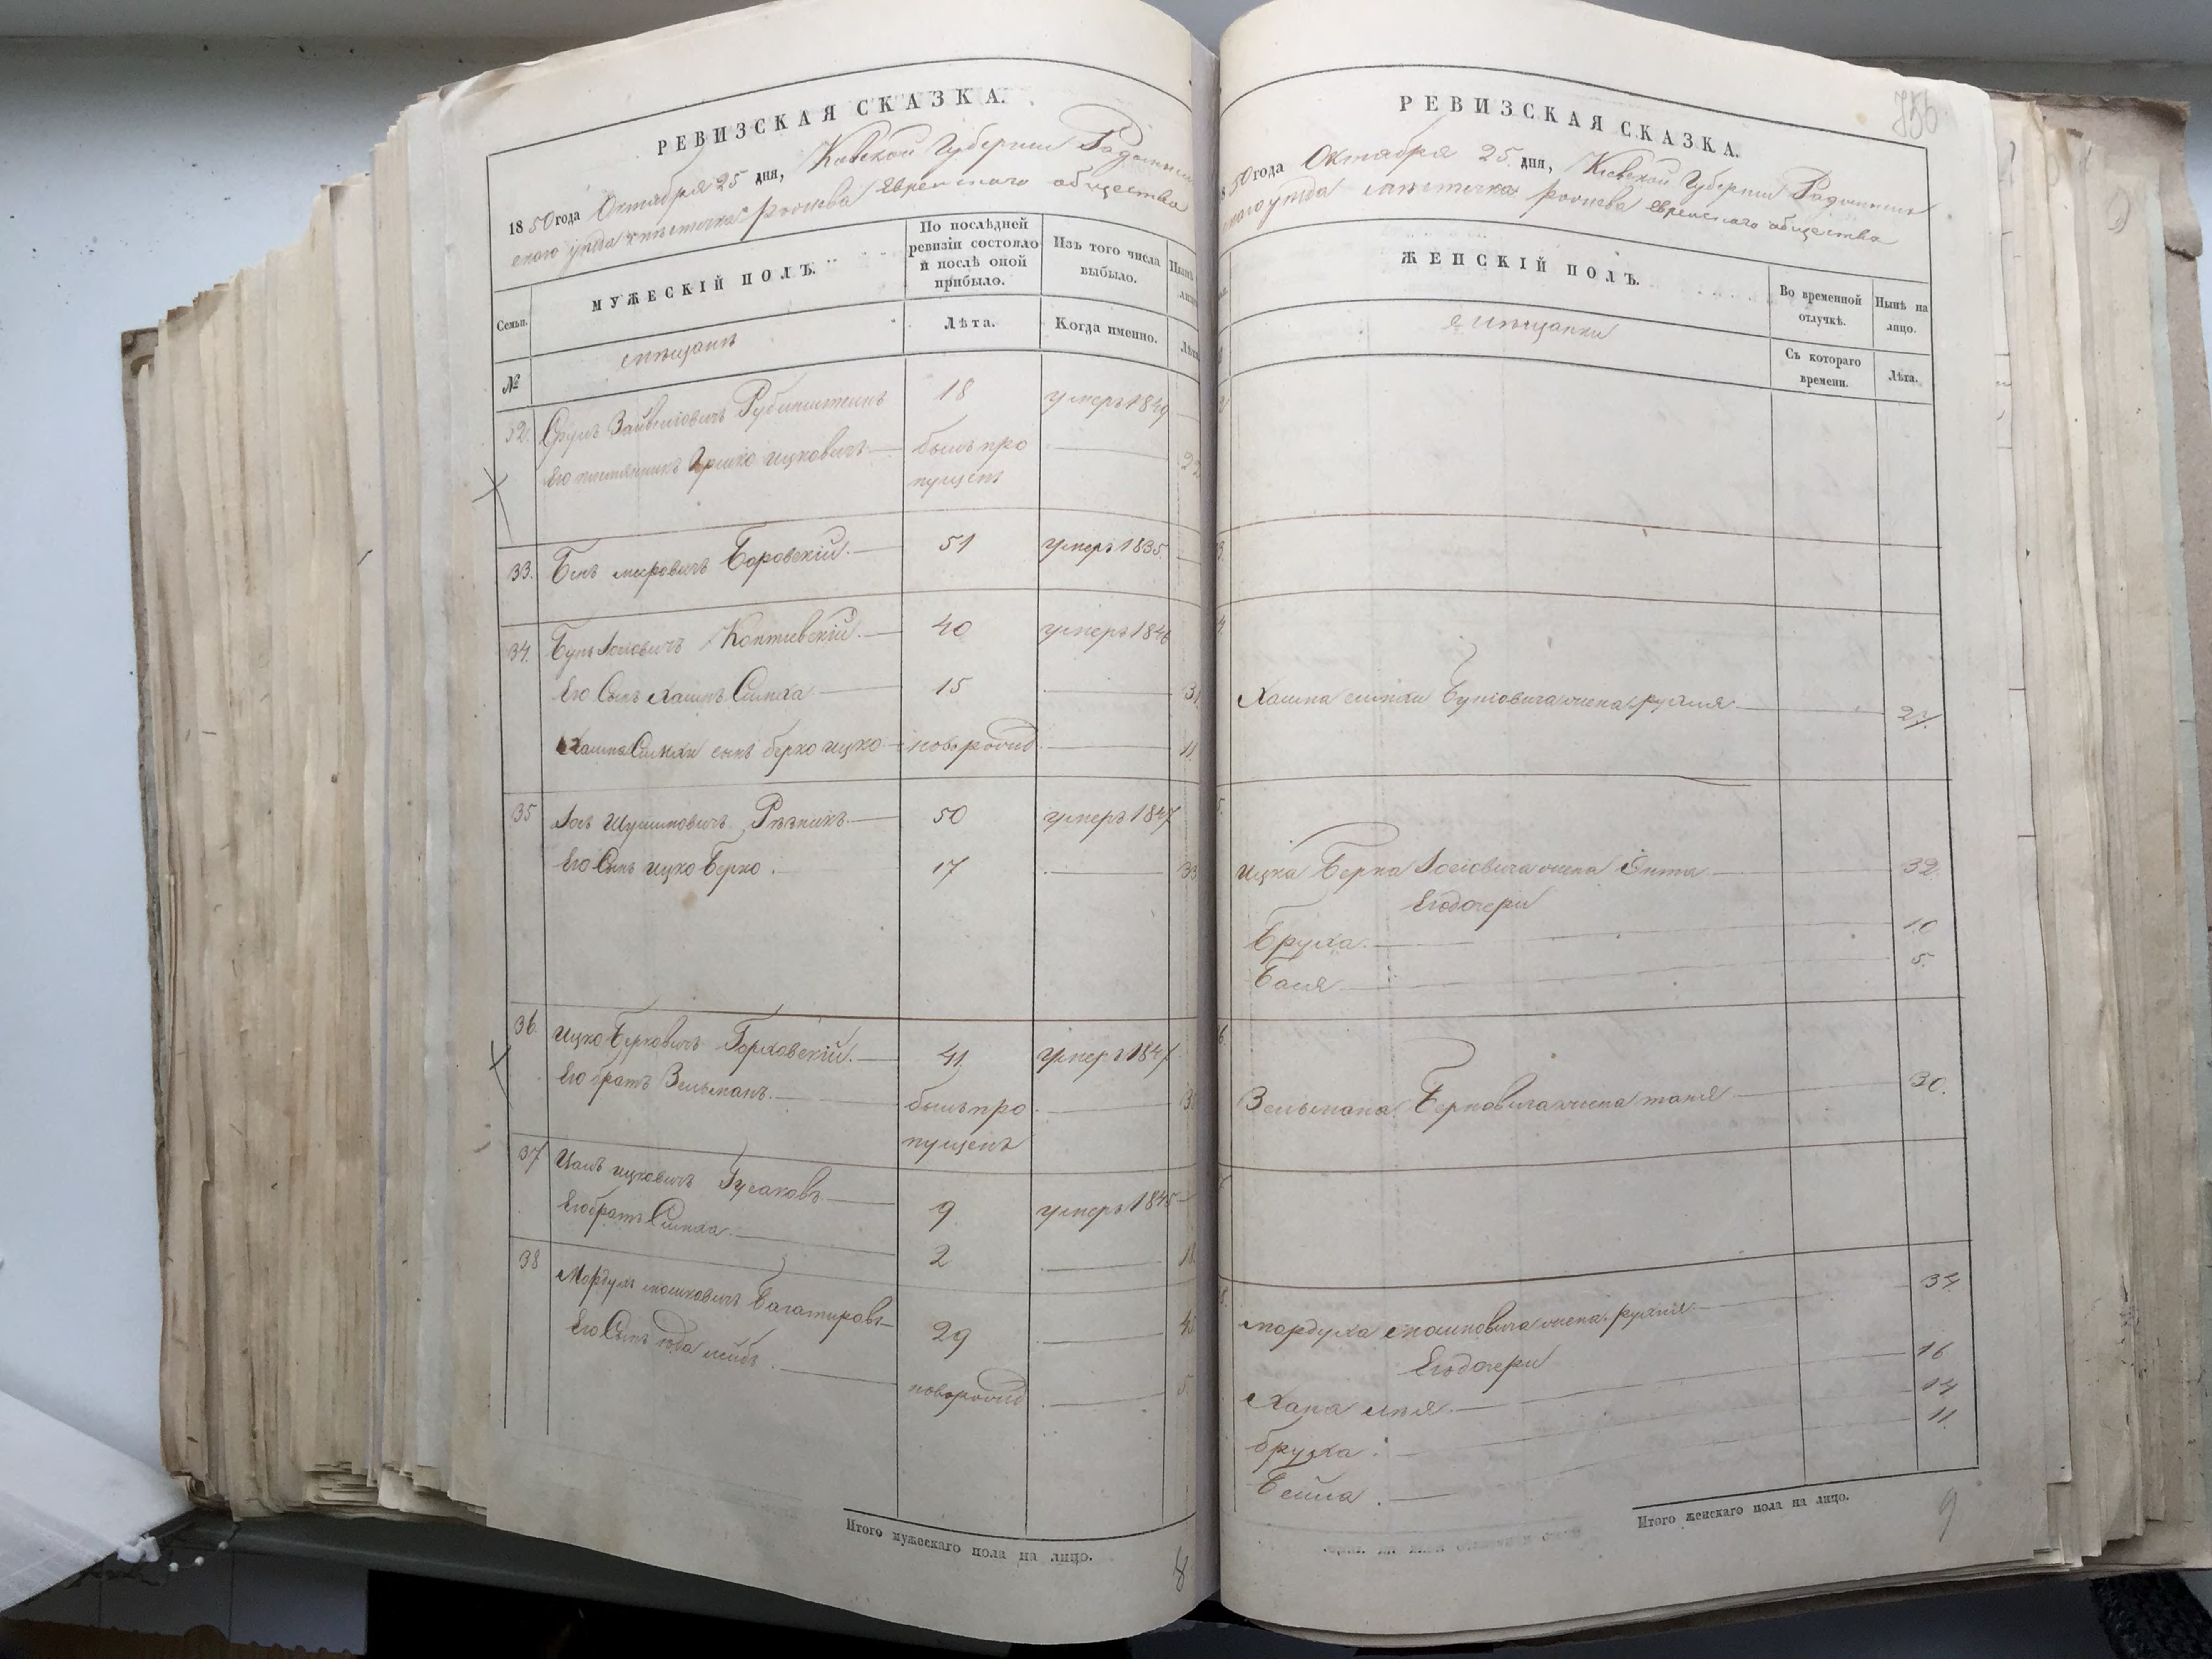 РЕВИЗСКАЯ СКАЗКА.
1850 года Октября 25 дня, Киевской Губернии Радомысль
скаго уѣзда мѣстечка Рогнева Еврейскаго общества
Семьи.
МУЖЕСКІЙ ПОЛЪ.
По послѣдней
ревизіи состояло
и послѣ оной
прибыло.
Изъ того числа
выбыло.
№
мѣщане
Лѣта.
Когда именно.
32. Сруль Зайвелевичъ Рубинштейнъ 18 умеръ 1849
Его племянникъ Гершко Ицковичъ былъ про
пущенъ
33. Бенъ Меровичъ Боровскій 51 умеръ 1835.
34. Бунъ Іосіовичъ Коптиевскій 40 умеръ 1846
Его Сынъ Хаимъ Симха 15 31
Хаима Симхи сынъ Берко Ицко новорожд 11
35 Іось Шулимовичъ Рѣзникъ 50 умеръ 1847
Его Сынъ Ицко Берко 17 33
36. Ицко Берковичъ Горховскій 41 умеръ 1847
Его братъ Зельманъ былъ про
пущенъ
37 Ицковичъ Гусаковъ 9 умеръ 1845
Его братъ Симха 2 18
38 Мордухъ Мошковичъ Багатировъ 29 45
Его Сынъ Іода Лейбъ новорожд 5
Итого мужескаго пола на лицо.
8
756
РЕВИЗСКАЯ СКАЗКА.
50 года Октября 25 дня, Киевской Губернии Радомысль
скаго уѣзда мѣстечка Рогнева Еврейскаго общества
ЖЕНСКІЙ ПОЛЪ.
Во временной
отлучкѣ.
Нынѣ на
лицо.
мѣщанки
Съ котораго
времени.
Лѣта.
Хаима Симхи Бунiовича жена Рухля 27.
Ицка Берка Іосіовича жена Ента 32
Его дочери
Бруха 10
Бася 5.
Зельмана Берковича жена Таня 30.
Мордуха Мошковича жена Рухля 34
Его дочери
Хана Мѣя 16
Бруха 14
Бейла 11
Итого женскаго пола на лицо.
9